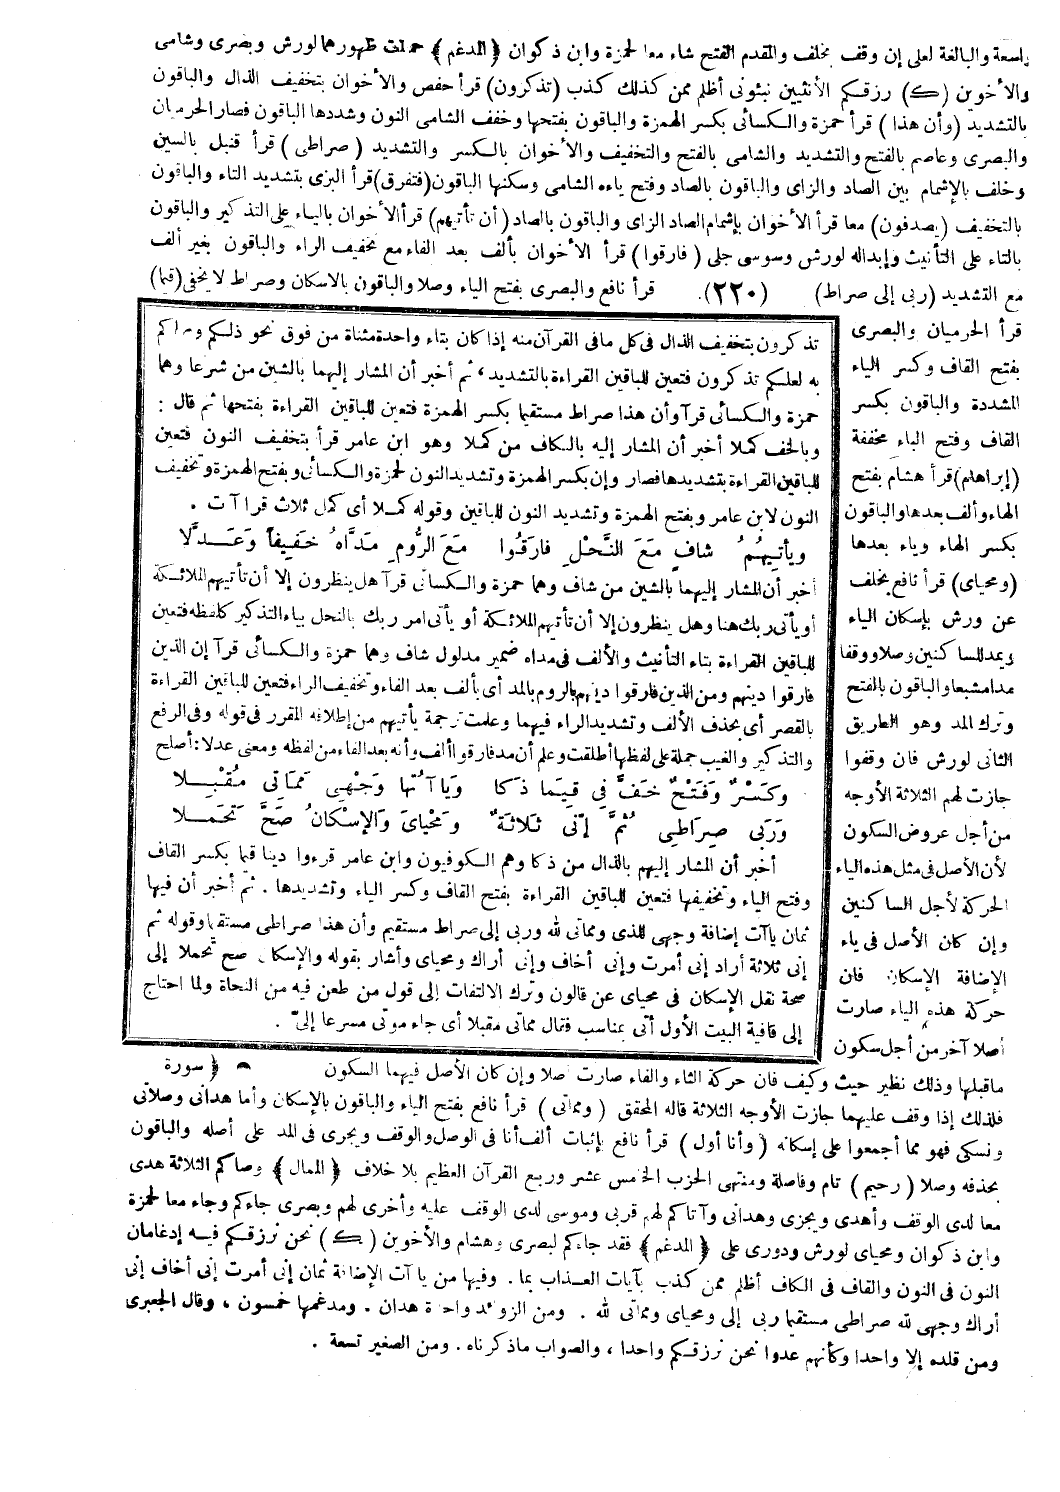 واسعة والبالغة لعلى إن وقف بخلف والمقدم الفتح شاء معا لحمزة وابن ذكوان ﴿المدغم﴾ حملت ظهورهما لورش وبصرى وشامى
والأخوين (ك) رزقكم الأنثيين نبئونى أظلم ممن كذلك كذب (تذكرون) قرأ حفص والأخوان بتخفيف الذال والباقون
بالتشديد (وأن هذا) قرأ حمزة والكسائى بكسر الهمزة والباقون بفتحها وخفف الشامى النون وشددها الباقون فصار الحرميان
والبصرى وعاصم بالفتح والتشديد والشامى بالفتح والتخفيف والأخوان بالكسر والتشديد (صراطى) قرأ قنبل بالسين
وخلف بالإشمام بين الصاد والزاى والباقون بالصاد وفتح ياءه الشامى وسكنها الباقون (فتفرق) قرأ البزى بتشديد التاء والباقون
بالتخفيف (يصدفون) معا قرأ الأخوان بإشمام الصاد الزاى والباقون بالصاد (أن تأتيهم) قرأ الأخوان بالياء على التذكير والباقون
بالتاء على التأنيث وإبداله لورش وسوسى جلى (فارقوا) قرأ الأخوان بألف بعد الفاء مع تخفيف الراء والباقون بغير ألف
مع التشديد (ربى إلى صراط) (٢٢٠). قرأ نافع والبصرى بفتح الياء وصلا والباقون بالاسكان وصراط لا يخفى (قيما)
قرأ الحرميان والبصرى
بفتح القاف وكسر الياء
المشددة والباقون بكسر
القاف وفتح الياء مخففة
(إبراهام) قرأ هشام بفتح
الهاء وألف بعدها والباقون
بكسر الهاء وياء بعدها
(ومحياى) قرأ نافع بخلف
عن ورش بإسكان الياء
ويمد للساكنين وصلا ووقفا
مدا مشبعا والباقون بالفتح
وترك المد وهو الطريق
الثانى لورش فان وقفوا
جازت لهم الثلاثة الأوجه
من أجل عروض السكون
لأن الأصل فى مثل هذه الياء
الحركة لأجل الساكنين
وإن كان الأصل فى ياء
الإضافة الإسكان فان
حركة هذه الياء صارت
أصلا آخر من أجل سكون
تذكرون بتخفيف الذال فى كل ما فى القرآن منه إذا كان بتاء واحدة مثناة من فوق نحو ذلكم وصاكم
به لعلكم تذكرون فتعين للباقين القراءة بالتشديد، ثم أخبر أن المشار إليهما بالشين من شرعا وهما
حمزة والكسائى قرآ وأن هذا صراط مستقيما بكسر الهمزة فتعين للباقين القراءة بفتحها ثم قال :
وبالخف كملا أخبر أن المشار إليه بالكاف من كملا وهو ابن عامر قرأ بتخفيف النون فتعين
للباقين القراءة بتشديدها فصار وإن بكسر الهمزة وتشديد النون لحمزة والكسائى وبفتح الهمزة وتخفيف
النون لابن عامر وبفتح الهمزة وتشديد النون للباقين وقوله كملا أى كمل ثلاث قراآت .
ويأتيهُمُ شافٍ مَعَ النَّحْلِ فارَقُوا مَعَ الرُّومِ مَدَّاهُ خَفِيفاً وَعَدَّلَا
أخبر أن المشار إليهما بالشين من شاف وهما حمزة والكسائى قرآ هل ينظرون إلا أن تأتيهم الملائكة
أو يأتى ربك هنا وهل ينظرون إلا أن تأتيهم الملائكة أو يأتى امر ربك بالنحل بياء التذكير كلفظه فتعين
للباقين القراءة بتاء التأنيث والألف فى مداه ضمير مدلول شاف وهما حمزة والكسائى قرآ إن الذين
فارقوا دينهم ومن الذين فارقوا دينهم بالروم بالمد أى بألف بعد الفاء وتخفيف الراء فتعين للباقين القراءة
بالقصر أى بحذف الألف وتشديد الراء فيهما وعلمت ترجمة يأتيهم من إطلاقه المقرر فى قوله وفى الرفع
والتذكير والغيب جملة على لفظها أطلقت وعلم أن مد فارقوا ألف وأنه بعد الفاء من لفظه ومعنى عدلا : أصلح
وَكَسْرٌ وَفَتْحٌ خَفَّ فِي قِيَمًا ذَكَا وَيَاآتُهَا وَجْهِي مَمَاتِي مُقْبِلَا
وَرَبِّي صِرَاطِي ثُمَّ إِنِّي ثَلَاثَةٌ وَمَحْيَايَ وَالإِسْكَانُ صَحَّ تَحَمُّلَا
أخبر أن المشار إليهم بالذال من ذكا وهم الكوفيون وابن عامر قرءوا دينا قيما بكسر القاف
وفتح الياء وتخفيفها فتعين للباقين القراءة بفتح القاف وكسر الياء وتشديدها . ثم أخبر أن فيها
ثمان ياآت إضافة وجهى للذى ومماتى لله وربى إلى صراط مستقيم وأن هذا صراطى مستقيما وقوله ثم
إنى ثلاثة أراد إنى أمرت وإنى أخاف وإنى أراك ومحياى وأشار بقوله والإسكان صح تحملا إلى
صحة نقل الإسكان فى محياى عن قالون وترك الالتفات إلى قول من طعن فيه من النحاة ولما احتاج
إلى قافية البيت الأول أتى بمناسب فقال مماتى مقبلا أى جاء موتى مسرعا إلىّ .
ماقبلها وذلك نظير حيث وكيف فان حركة الثاء والفاء صارت أصلا وإن كان الأصل فيهما السكون ﴿سورة
فلذلك إذا وقف عليهما جازت الأوجه الثلاثة قاله المحقق (ومماتى) قرأ نافع بفتح الياء والباقون بالإسكان وأما هدانى وصلاتى
ونسكى فهو مما أجمعوا على إسكانه (وأنا أول) قرأ نافع بإثبات ألف أنا فى الوصل والوقف ويجرى فى المد على أصله والباقون
بحذفه وصلا (رحيم) تام وفاصلة ومنتهى الحزب الخامس عشر وربع القرآن العظيم بلا خلاف ﴿الممال﴾ وصاكم الثلاثة هدى
معا لدى الوقف وأهدى ويجزى وهدانى وآتاكم لهم قربى وموسى لدى الوقف عليه وأخرى لهم وبصرى جاءكم وجاء معا لحمزة
وابن ذكوان ومحياى لورش ودورى على ﴿المدغم﴾ فقد جاءكم لبصرى وهشام والأخوين (ك) نحن نرزقكم فيه إدغامان
النون فى النون والقاف فى الكاف أظلم ممن كذب بآيات العذاب بما . وفيها من ياآت الإضافة ثمان إنى أمرت إنى أخاف إنى
أراك وجهى لله صراطى مستقيما ربى إلى ومحياى ومماتى لله . ومن الزوائد واحدة هدان . ومدغمها خمسون ، وقال الجعبرى
ومن قلده إلا واحدا وكأنهم عدوا نحن نرزقكم واحدا ، والصواب ما ذكرناه . ومن الصغير تسعة .